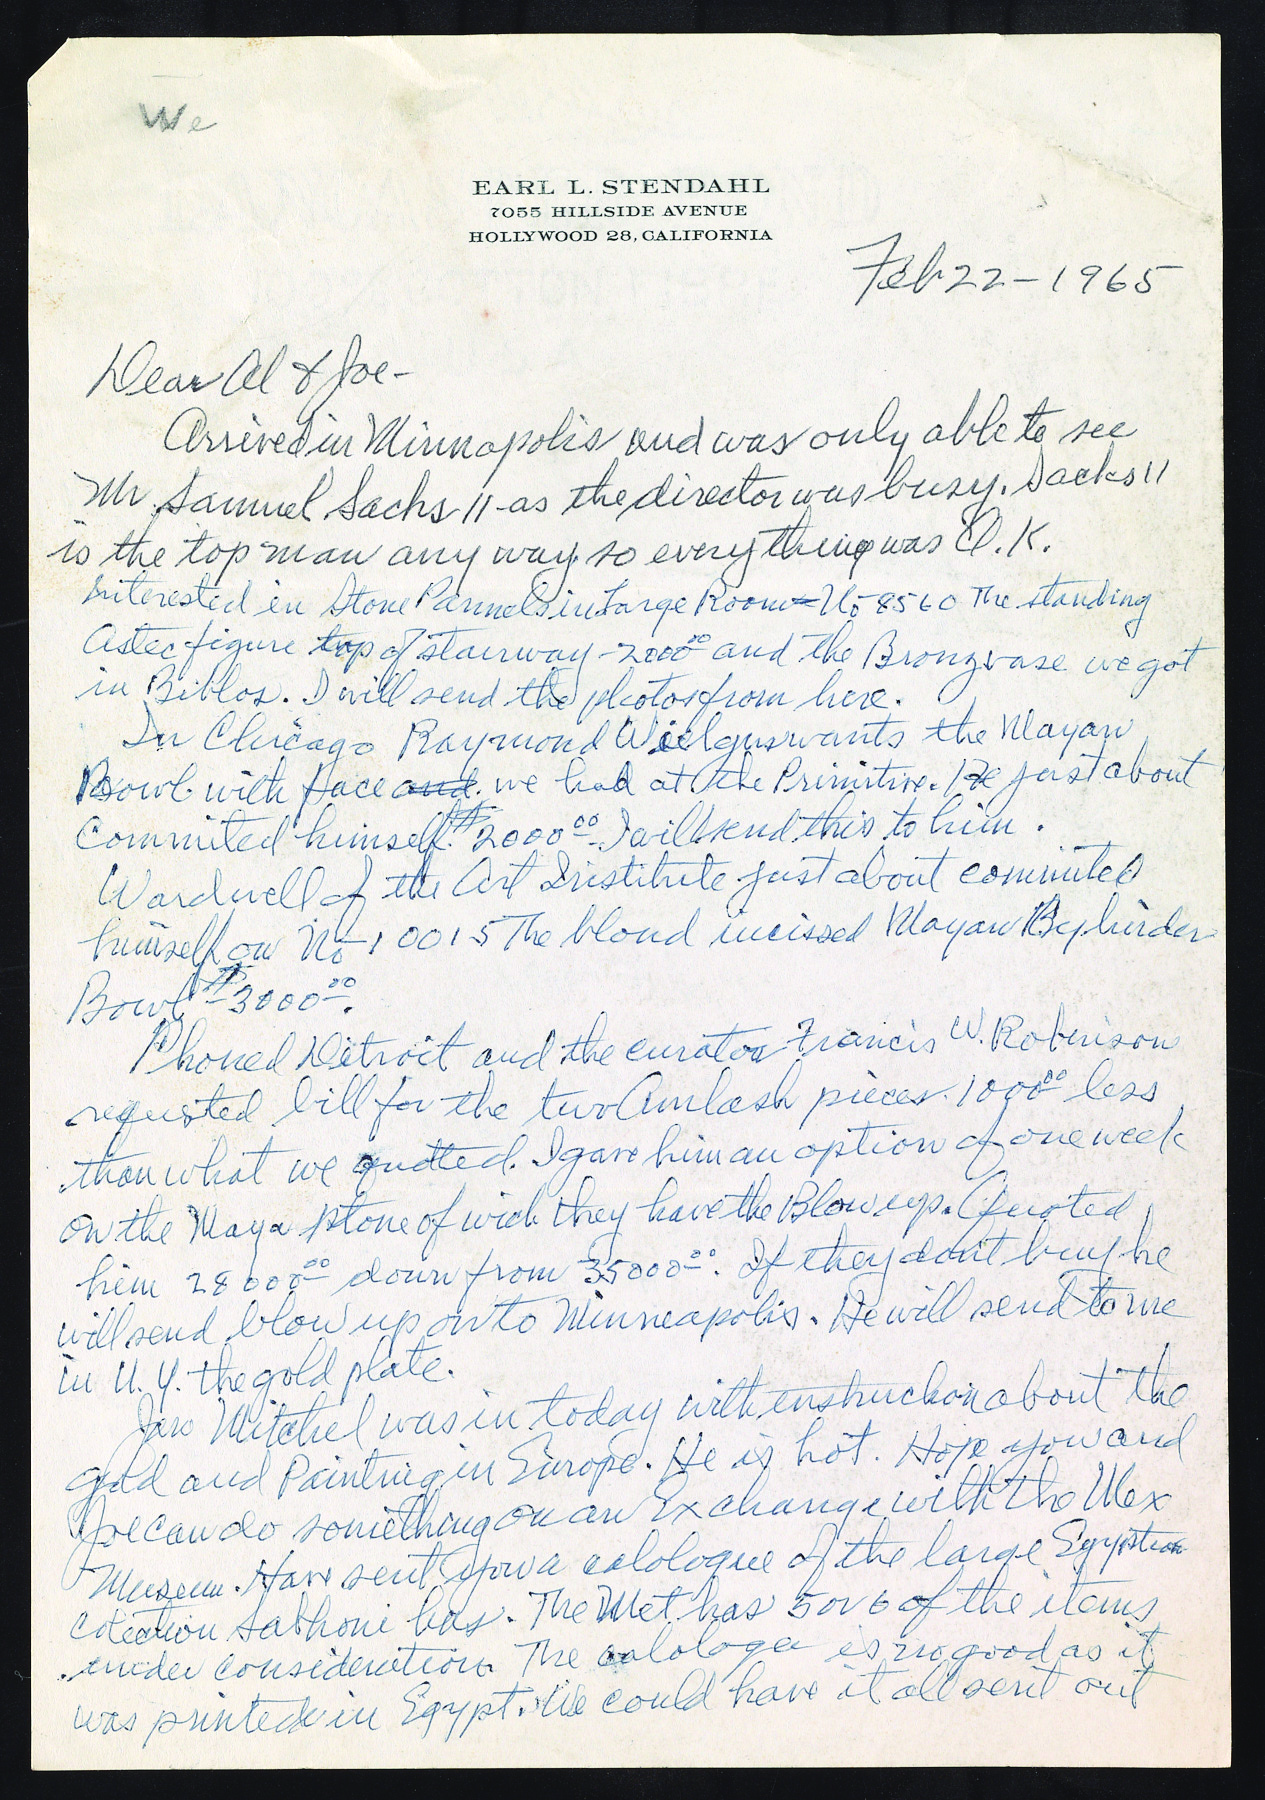 We
EARL L. STENDAHL
7055 HILLSIDE AVENUE
HOLLYWOOD 28, CALIFORNIA
Feb 22 - 1965
Dear Al & Joe -
Arrived in Minnapolis and was only able to see
Mr. Samuel Sachs 11 - as the director was busy. Sachs 11
is the top man any way, so everything was O.K.
Interested in Stone Pannels in Large Room - No 8560 The standing
Astec figure top of stairway - 2000⁰⁰ and the Bronz vase we got
in Biblos. I will send the photos from here.
In Chicago Raymond Wielgus wants the Mayan
Bowl with face and we had at the Primitive. He just about
Commited himself. $2000⁰⁰. I will send this to him.
Wardwell of the Art Institute just about commited
himself on No 10015 The blond incissed Mayan
Bowl $3000⁰⁰.
Phoned Detroit and the curator Francis W. Robinson
requsted bill for the two Amlash pieces. 1000⁰⁰ less
than what we quotted. I gave him an option of one week
on the Maya stone of wich they have the Blow up. Quoted
him 28000⁰⁰ down from 35000⁰⁰. If they dont buy he
will send blow up on to Minneapolis. He will send to me
in N.Y. the gold plate.
Jan Mitchel was in today with enstruction about the
gold and Painting in Europe. He is hot. Hope you and
Joe can do something on an Exchange with the Mex
Museum. Have sent you a calologue of the large Egyptian
has. The Met has 5 or 6 of the items
under consideration. The is no good as it
was printed in Egypt. We could have it all sent out